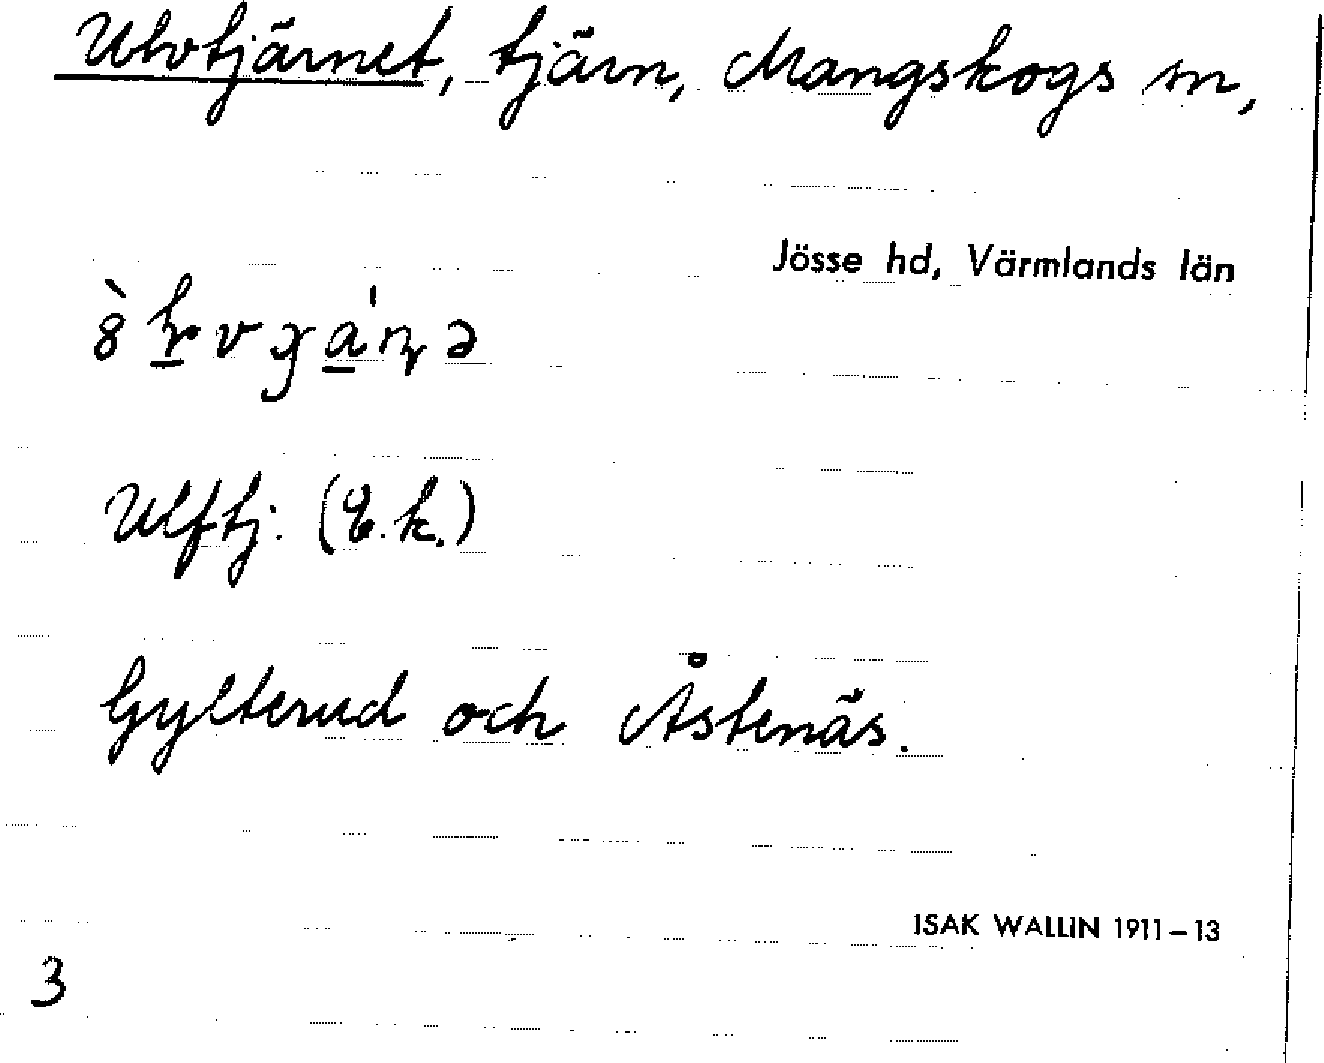 Ulvtjärnet, tjärn, Mangskogs sn,
Jösse hd, Värmlands län
Ulftj. (E.k.)
Gylterud och Åstenäs.
ISAK WALLIN 1911–13
3